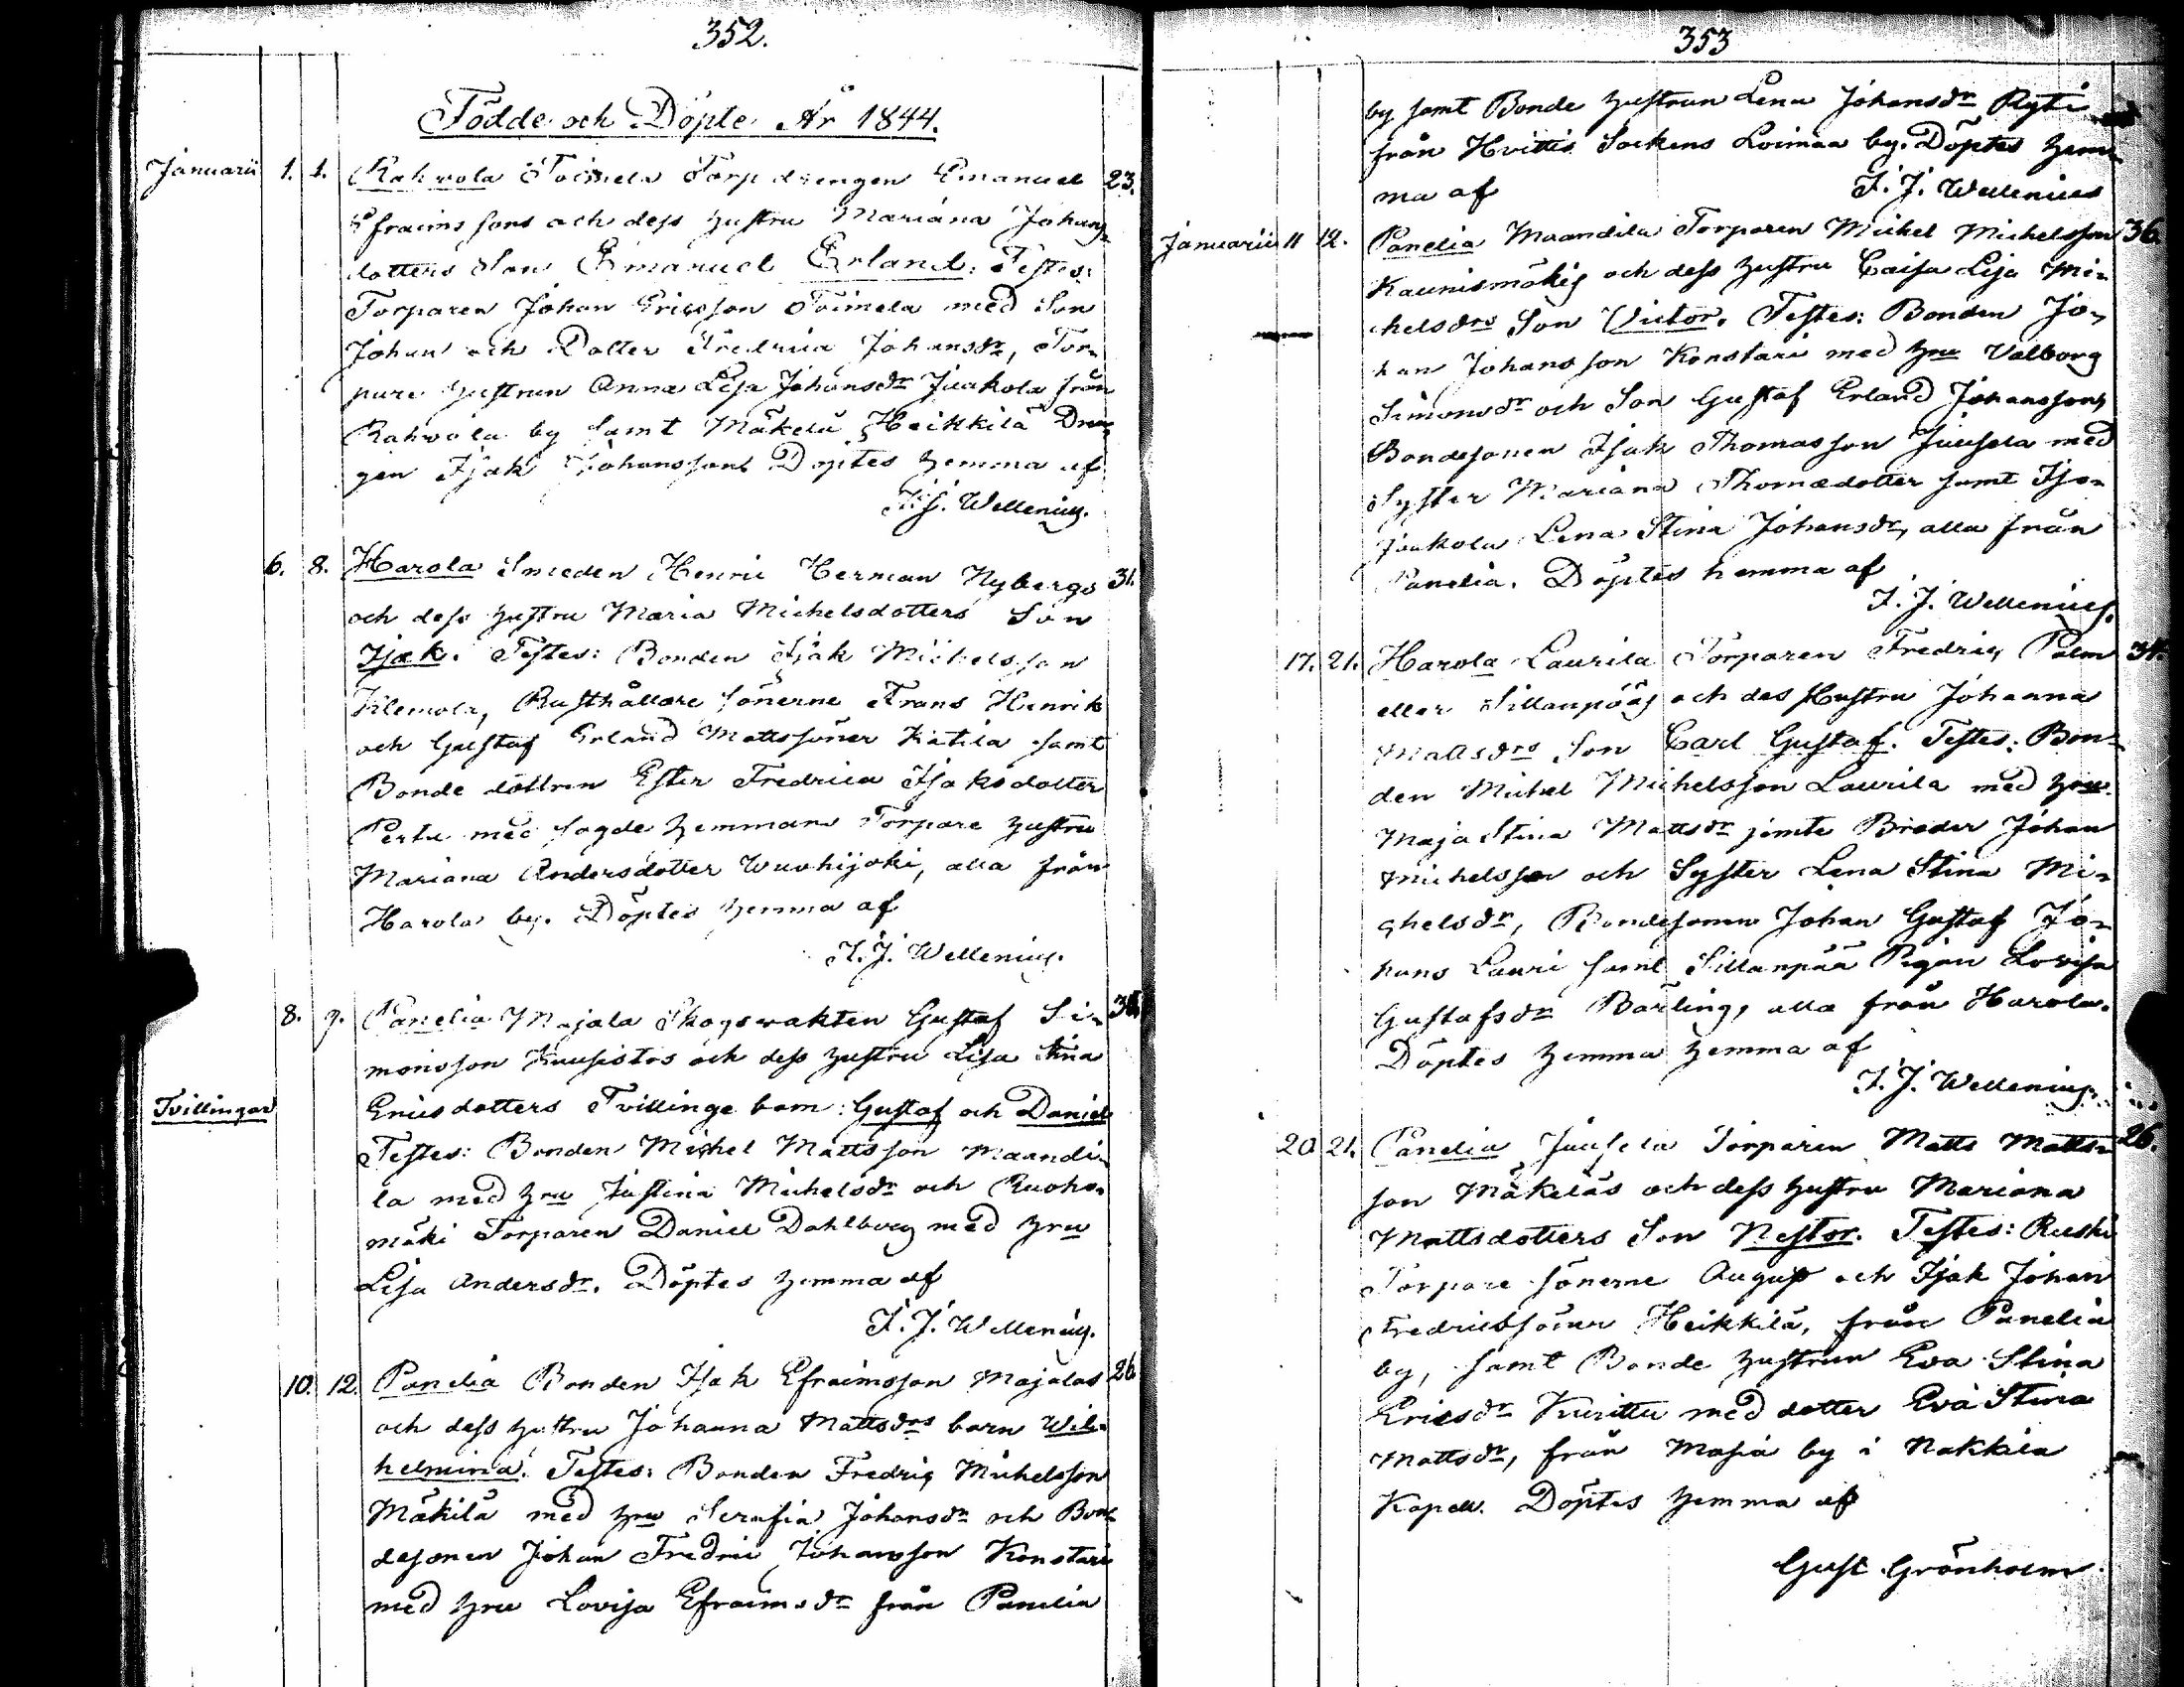 352.
Födde och Döpte År 1844.
Januarii 1. 1. Rahvola Toimela Torp drengen Emanuel 23.
Efraims sons och dess hustru Mariana Johans
dotters Son Emanuel Erland. Testes:
Torparen Johan Ericsson Toimela med Son
Johan och Dotter Fredrica Johansdr, Tor-
pare hustrun Anna Lisa Johansdr Juakola från
Rahvola by samt Mäkelä Heikkilä Dren-
gen Isak Johansson. Döptes hemma af
F. J. Wellenius.
6. 8. Harola Smeden Henric Herman Nybergs 31.
och dess hustru Maria Michelsdotters Son
Isak. Testes: Bonden Isak Michelsson
Klemola, Rusthållare sönerne Frans Henrik
och Gustaf Erland Mattssöner Katila samt
Bonde dottren Ester Fredrica Isaksdotter
Perttu med sagde hemmans Torpare hustru
Mariana Andersdotter Wuohijoki, alla från
Harola by. Döptes hemma af
F. J. Wellenius.
8. 9. Panelia Majala Skogsvakten Gustaf Si- 36.
monsson Kuusistos och dess hustru Lisa Stina
Tvillingar Ericsdotters Tvillinge barn: Gustaf och Daniel
Testes: Bonden Michel Mattsson Maandi-
la med hru Justina Michelsdr och Ruoho-
mäki Torparen Daniel Dahlberg med hru
Lisa Andersdr. Döptes hemma af
F. J. Wellenius.
10. 12. Panelia Bonden Isak Efraimsson Majalas 26.
och dess hustru Johanna Mattsdrs barn Wil-
helmina. Testes: Bonden Fredric Michelsson
Mäkilä med hru Serafia Johansdr och Bon-
desonen Johan Fredric Johansson Konstari
med hru Lovisa Efraimsdr från Panelia
353
by samt Bonde hustrun Lena Johansdr Ryti
från Hvittis Sockens Loimaa by. Döptes hem-
ma af F. J. Wellenius
Januarii 11 12. Panelia Maandila Torparen Michel Michelsson 36.
Kaunismäkis och dess hustru Caisa Lisa Mi-
chelsdrs Son Victor. Testes: Bonden Jo-
han Johansson Konstari med hru Valborg
Simonsdr och Son Gustaf Erland Johansson,
Bondesonen Isak Thomasson Juusela med
Syster Mariana Thomædotter samt Iso-
Jaakola Lena Stina Johansdr, alla från
Panelia. Döptes hemma af
F. J. Wellenius.
17. 21. Harola Laurila Torparen Fredric Palm 31.
eller Sillanpääs och des Hustru Johanna
Mattsdrs Son Carl Gustaf. Testes: Bon-
den Michel Michelsson Laurila med hru
Maja Stina Mattsdr jemte Broder Johan
Michelsson och Syster Lena Stina Mi-
chelsdr, Bondesonen Johan Gustaf Jo-
hans Lauri samt Sillanpää Pigan Lovisa
Gustafsdr Barling, alla från Harola.
Döptes hemma hemma af
F. J. Wellenius.
20. 21. Panelia Juusela Torparen Matts Matts- 26.
son Mäkeläs och dess hustru Mariana
Mattsdotters Son Nestor. Testes: Ruski
Torpare sönerne August och Isak Johan
Fredricssöner Heikkilä, från Panelia
by, samt Bonde hustrun Eva Stina
Ericsdr Kurittu med dotter Eva Stina
Mattsdr, från Masia by i Nakkila
Kapell. Döptes hemma af
Gust Grönholm.